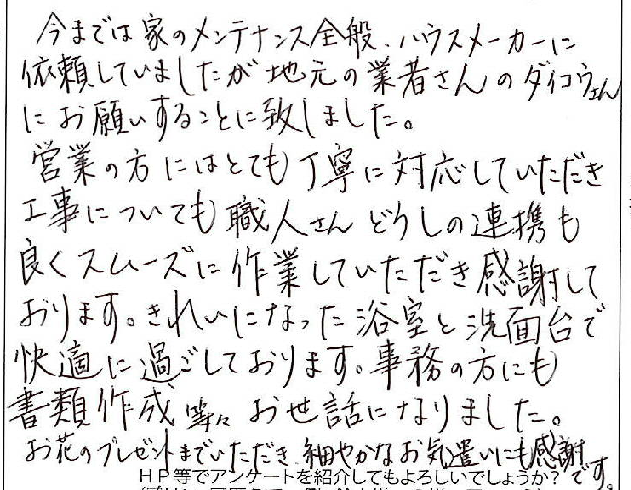 今までは家のメンテナンス全般、ハウスメーカーに
依頼していましたが地元の業者さんのダイコウさん
にお願いすることに致しました。
営業の方にはとても丁寧に対応していただき
工事についても職人さんどうしの連携も
良くスムーズに作業していただき感謝して
おります。きれいになった浴室と洗面台で
快適に過ごしております。事務の方にも
書類作成等々お世話になりました。
お花のプレゼントまでいただき、細やかなお気遣いにも感謝です。
HP等でアンケートを紹介してもよろしいでしょうか?